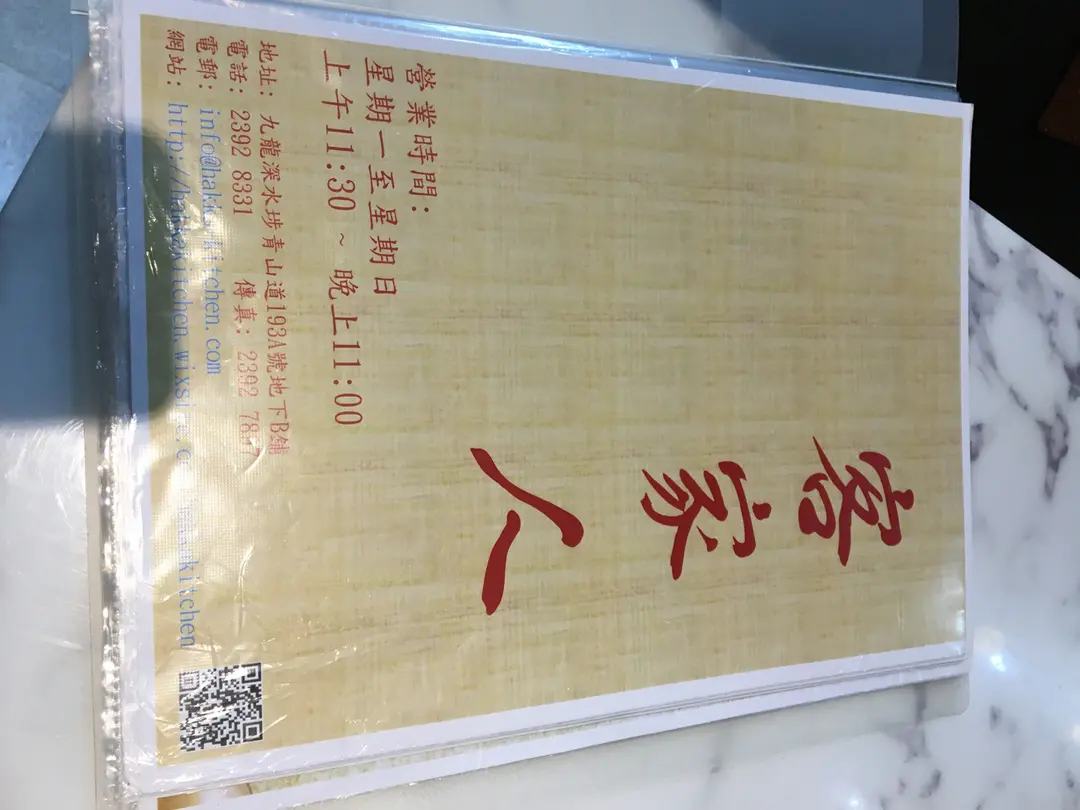 客家人
營業時間：
星期一至星期日
上午11:30 ~ 晚上11:00
地址：九龍深水埗青山道193A號地下B舖
電話：2392 8331 傳真：2392 7857
電郵：info@hakkakitchen.com
網站：